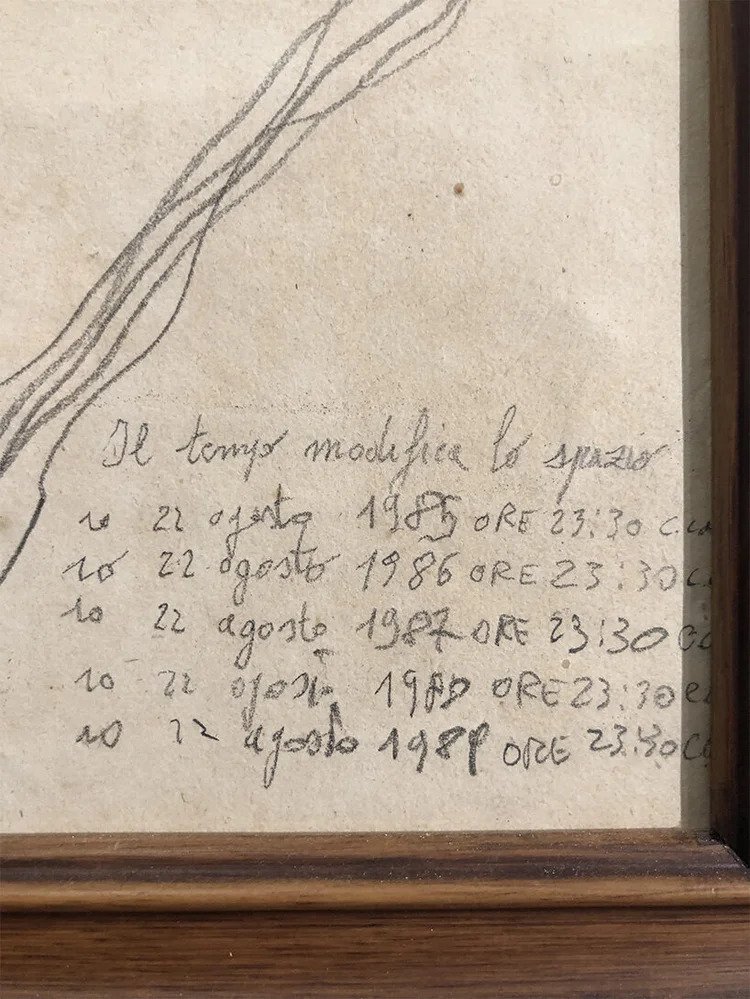 Il tempo modifica lo spazio
io 22 agosto 1985 ORE 23:30
io 22 agosto 1986 ORE 23:30
io 22 agosto 1987 ORE 23:30
io 22 agosto ORE 23:30
io 22 agosto 1989 ORE 23:30